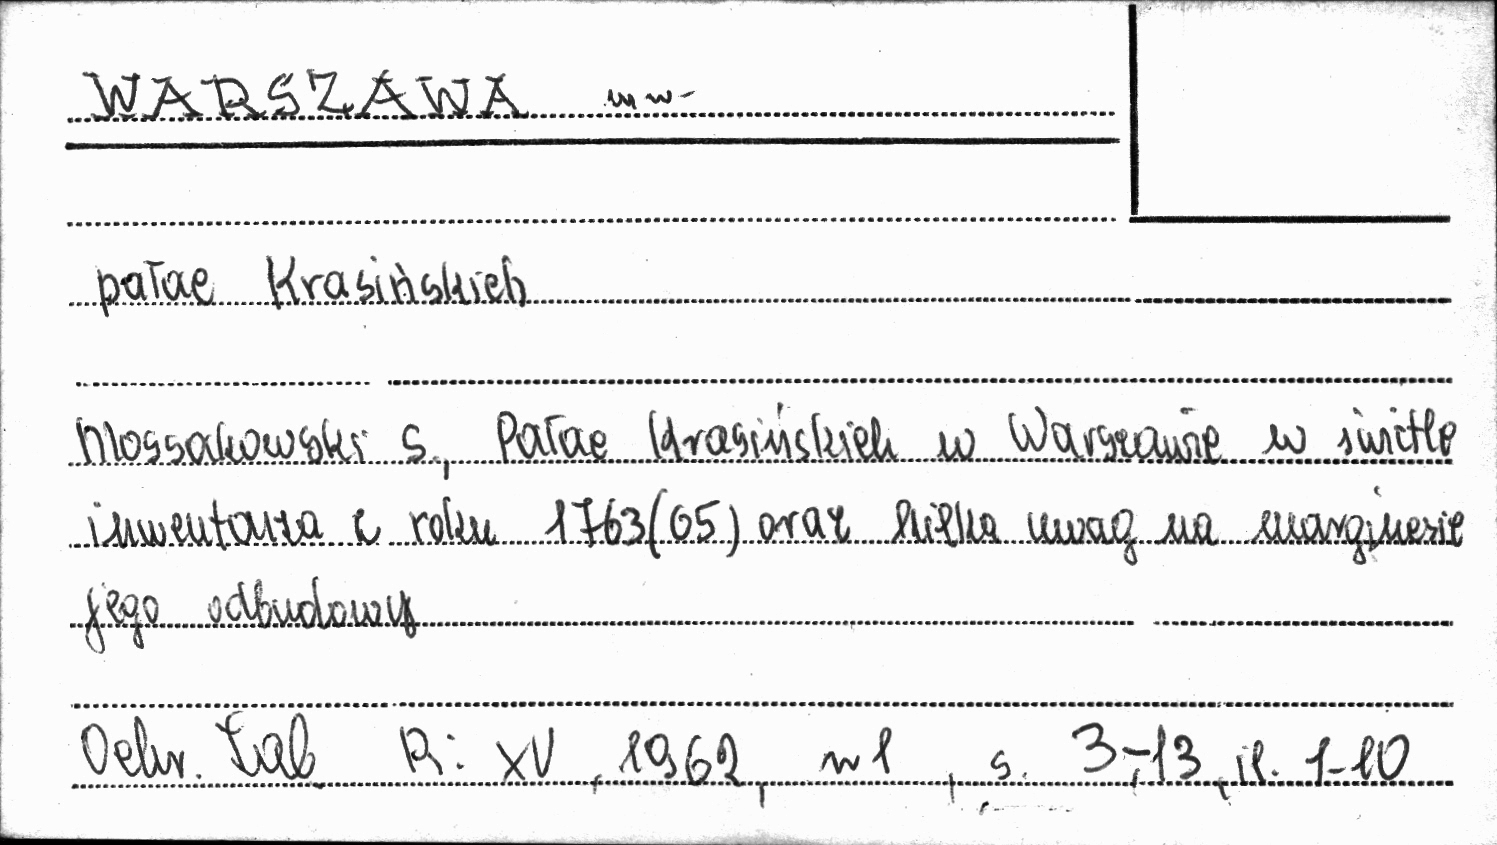 WARSZAWA m w-
pałac Krasińskich
Mossakowski S., Pałac Krasińskich w Warszawie w świetle
inwentarza z roku 1763(65) oraz kilka uwag na marginesie
jego odbudowy
Ochr. Zab R: XV, 1962, nr 1, s. 3-13, il. 1-10